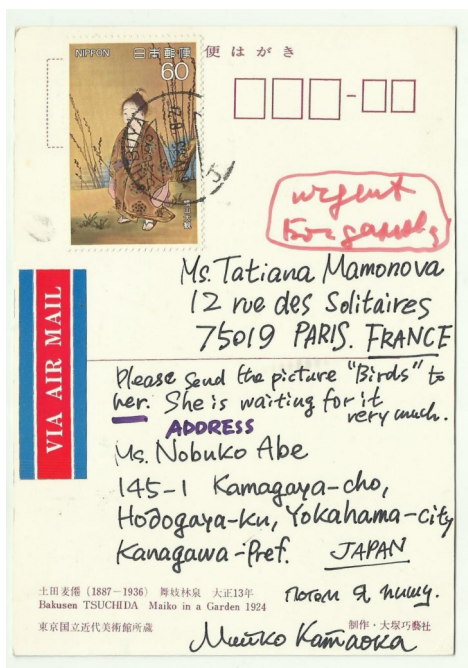 便はがき
NIPPON 日本郵便
60
urgent
Ms. Tatiana Mamonova
12 rue des Solitaires
75019 PARIS. FRANCE
VIA AIR MAIL
Please send the picture "Birds" to
her. She is waiting for it
very much.
ADDRESS
Ms. Nobuko Abe
145-1 Kamagaya-cho,
Hodogaya-ku, Yokahama-city
Kanagawa-Pref. JAPAN
потом я пишу.
土田麦僊 (1887-1936) 舞妓林泉 大正13年
Bakusen TSUCHIDA Maiko in a Garden 1924
東京国立近代美術館所蔵
制作・大塚巧藝社
Катаока